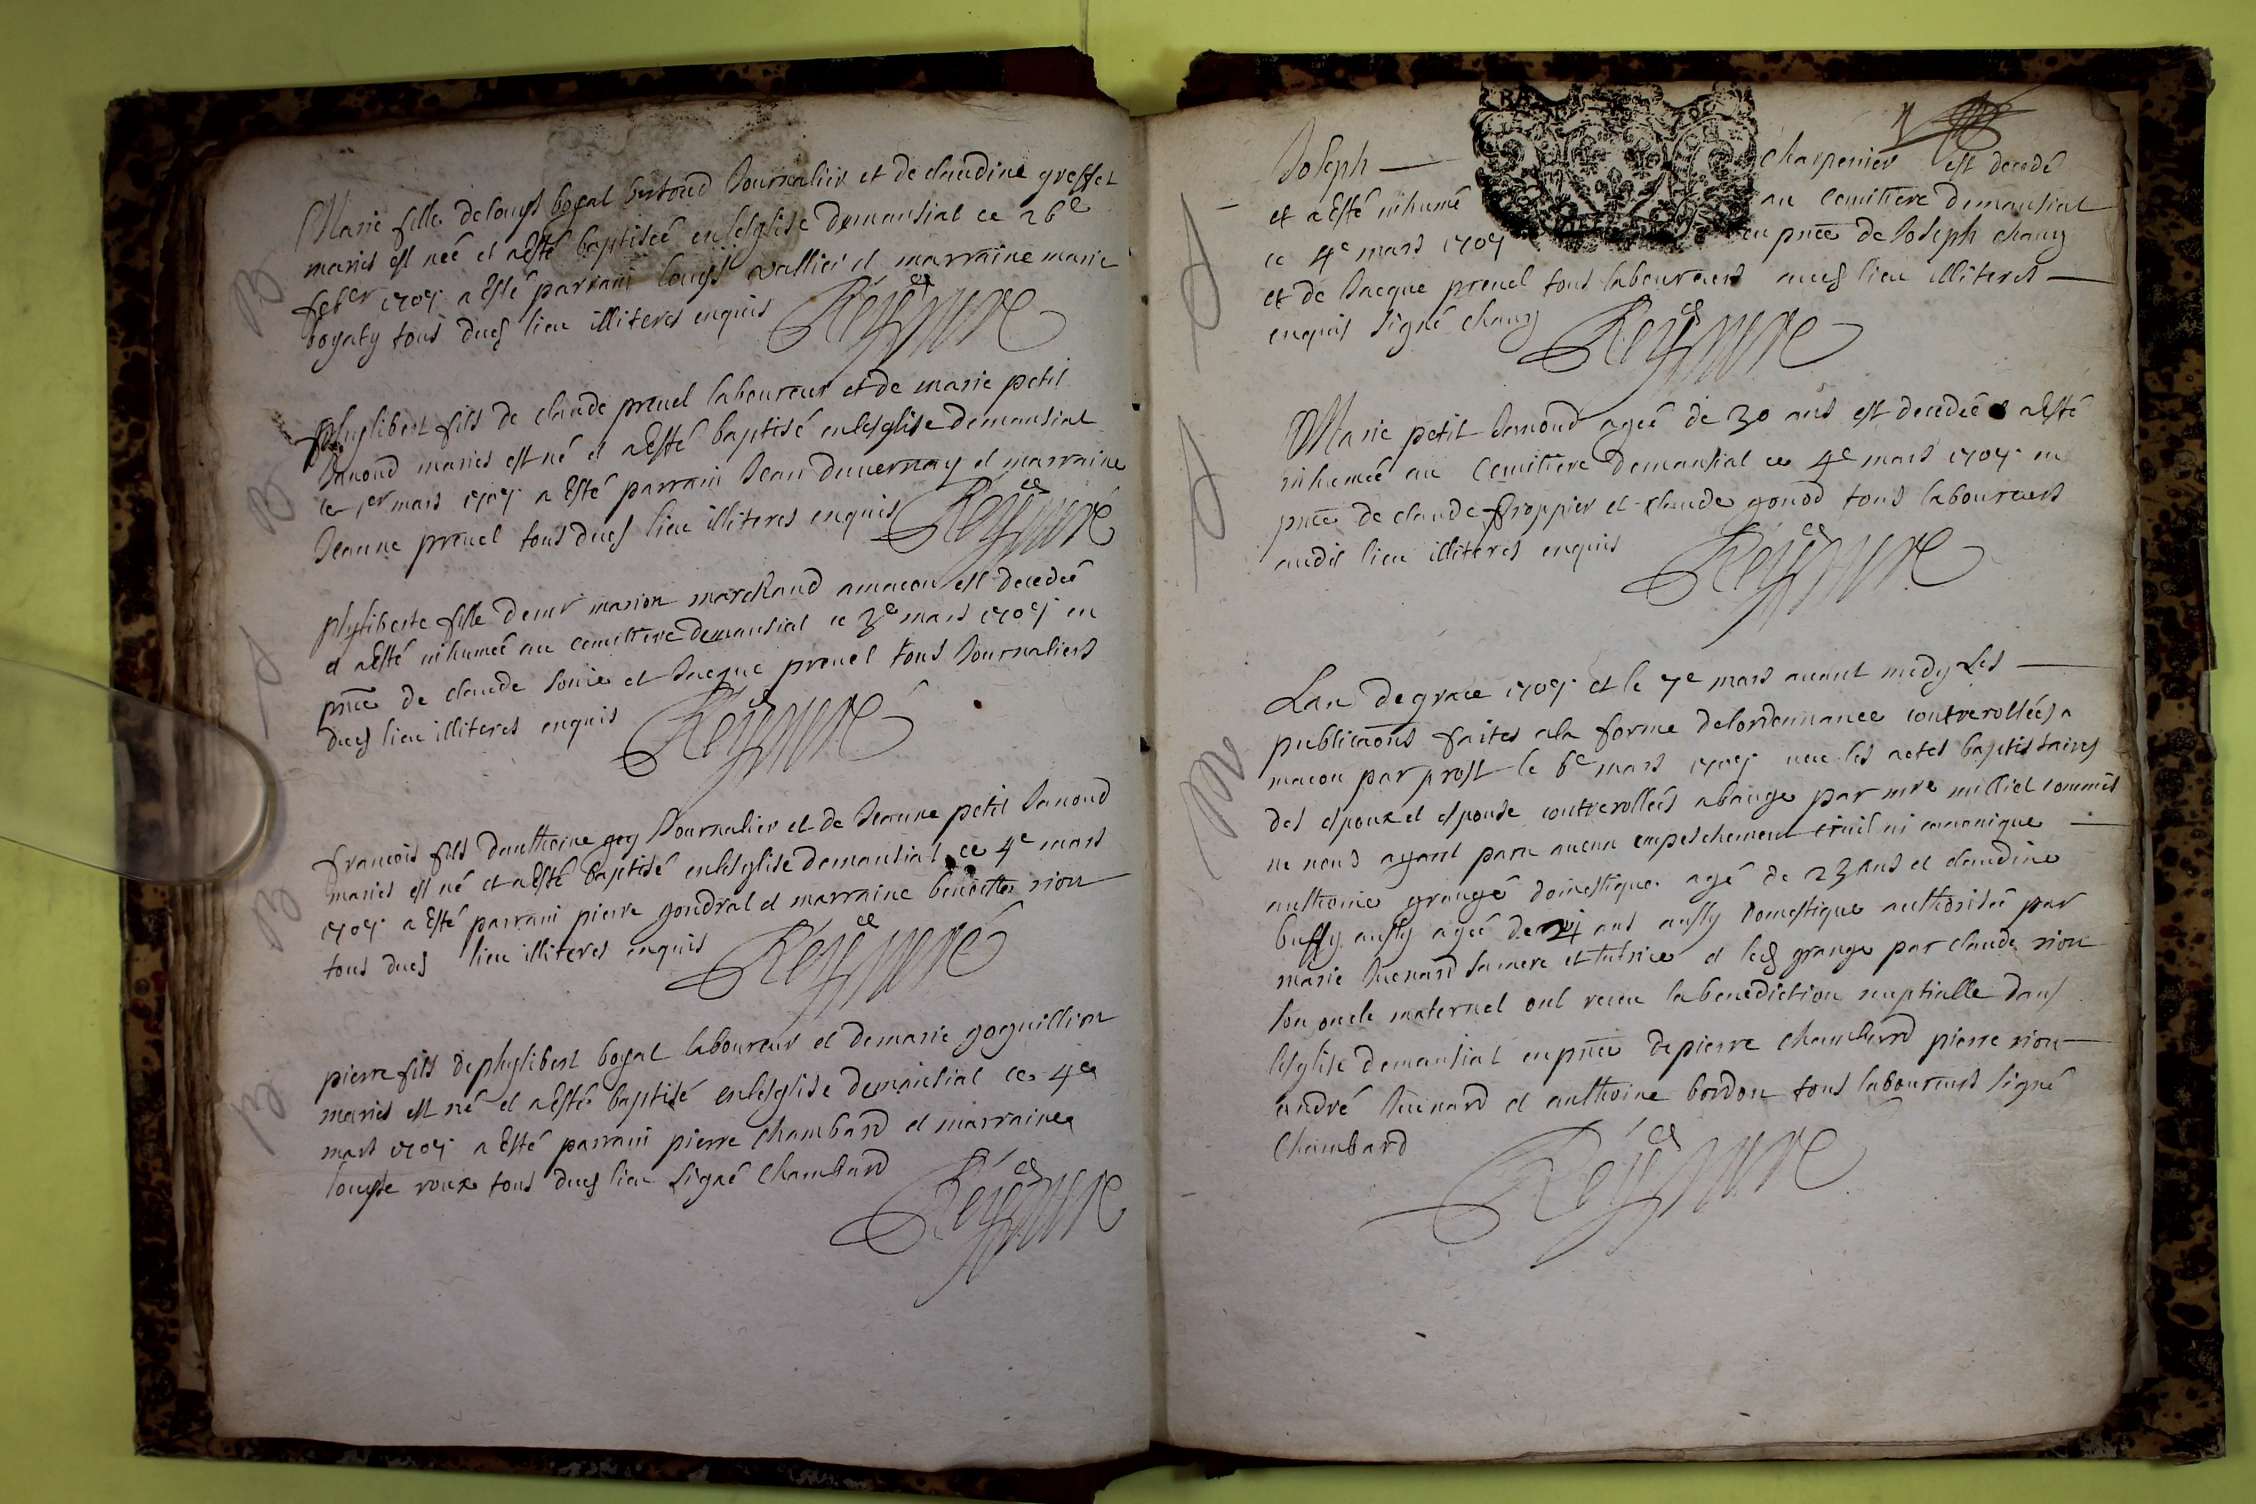 B
Marie fille de louys boyat bertoud Journalier et de claudine greffet
mariés est neé et a Esté baptiseé en lesglise demansiat ce 26e
feber 1707 a Esté parrain louys vallier et marraine marie
boyaty tous dud lieu illiteres enquis Réÿ cé
B
phylibert fils de claude preuel laboureur et de marie petit
Janoud mariés est né et a Esté baptisé en lesglise demansiat
ce 1er mars 1707 a Esté parrain Jean duuernay et marraine
Jeanne preuel tous dud lieu illiteres enquis
phyliberte fille de marion marchand a macon est decedeé
et a Esté inhumeé au cemitiere demansiat ce 3e mars 1707 en
pnce de claude et Jacque preuel tous Journaliers
dud lieu illiteres enquis
B
francois fils danthoine goy Journalier et de Jeanne petit Janoud
mariés est né et a Esté baptisé en lesglise demansiat ce 4e mars
1707 a Esté parrain pierre gondrat et marraine benoitte rion
tous dud lieu illiteres enquis
B
pierre fils de phylibert boyat laboureur et de marie goguillion
mariés est né et a Esté baptisé en lesglise demansiat ce 4e
mars 1707 a Esté parrain pierre chambard et marraine
louyse roux tous dud lieu signé chambard
Joseph charpenier est decedé
et a Esté inhumé au cemitiere demansiat
ce 4e mars 1707 en pnce de Joseph chany
et de Jacque preuel tous laboureurs aud lieu illiteres
enquis signé chany
Marie petit Janoud ageé de 30 ans est decedeé a Esté
inhumeé au Cemitiere demansiat ce 4e mars 1707 en
pnce de claude froppier et claude gonod tous laboureurs
audit lieu illiteres enquis
M
Lan de grace 1707 et le 7e mars auant midy Les
publicaons faites a la forme de lordonnance controlleés a
macon par prost le 6e mars 1707 ueu les actes baptistaires
des espoux et espouse controlleés a baugé par mre milliet commis
ne nous ayant paru aucun empeschement ciuil ni canonique
anthoine grange domestique agé de 23 ans et claudine
buffy aussy ageé de ans aussy domestique authoriseé par
marie Juenard sa mere et tutrice et led grange par claude rion
son oncle maternel ont receu la benediction nuptialle dans
lesglise demansiat en pnce de pierre chambard pierre rion
andré Juenard et anthoine bordon tous laboureurs signé
Chambard